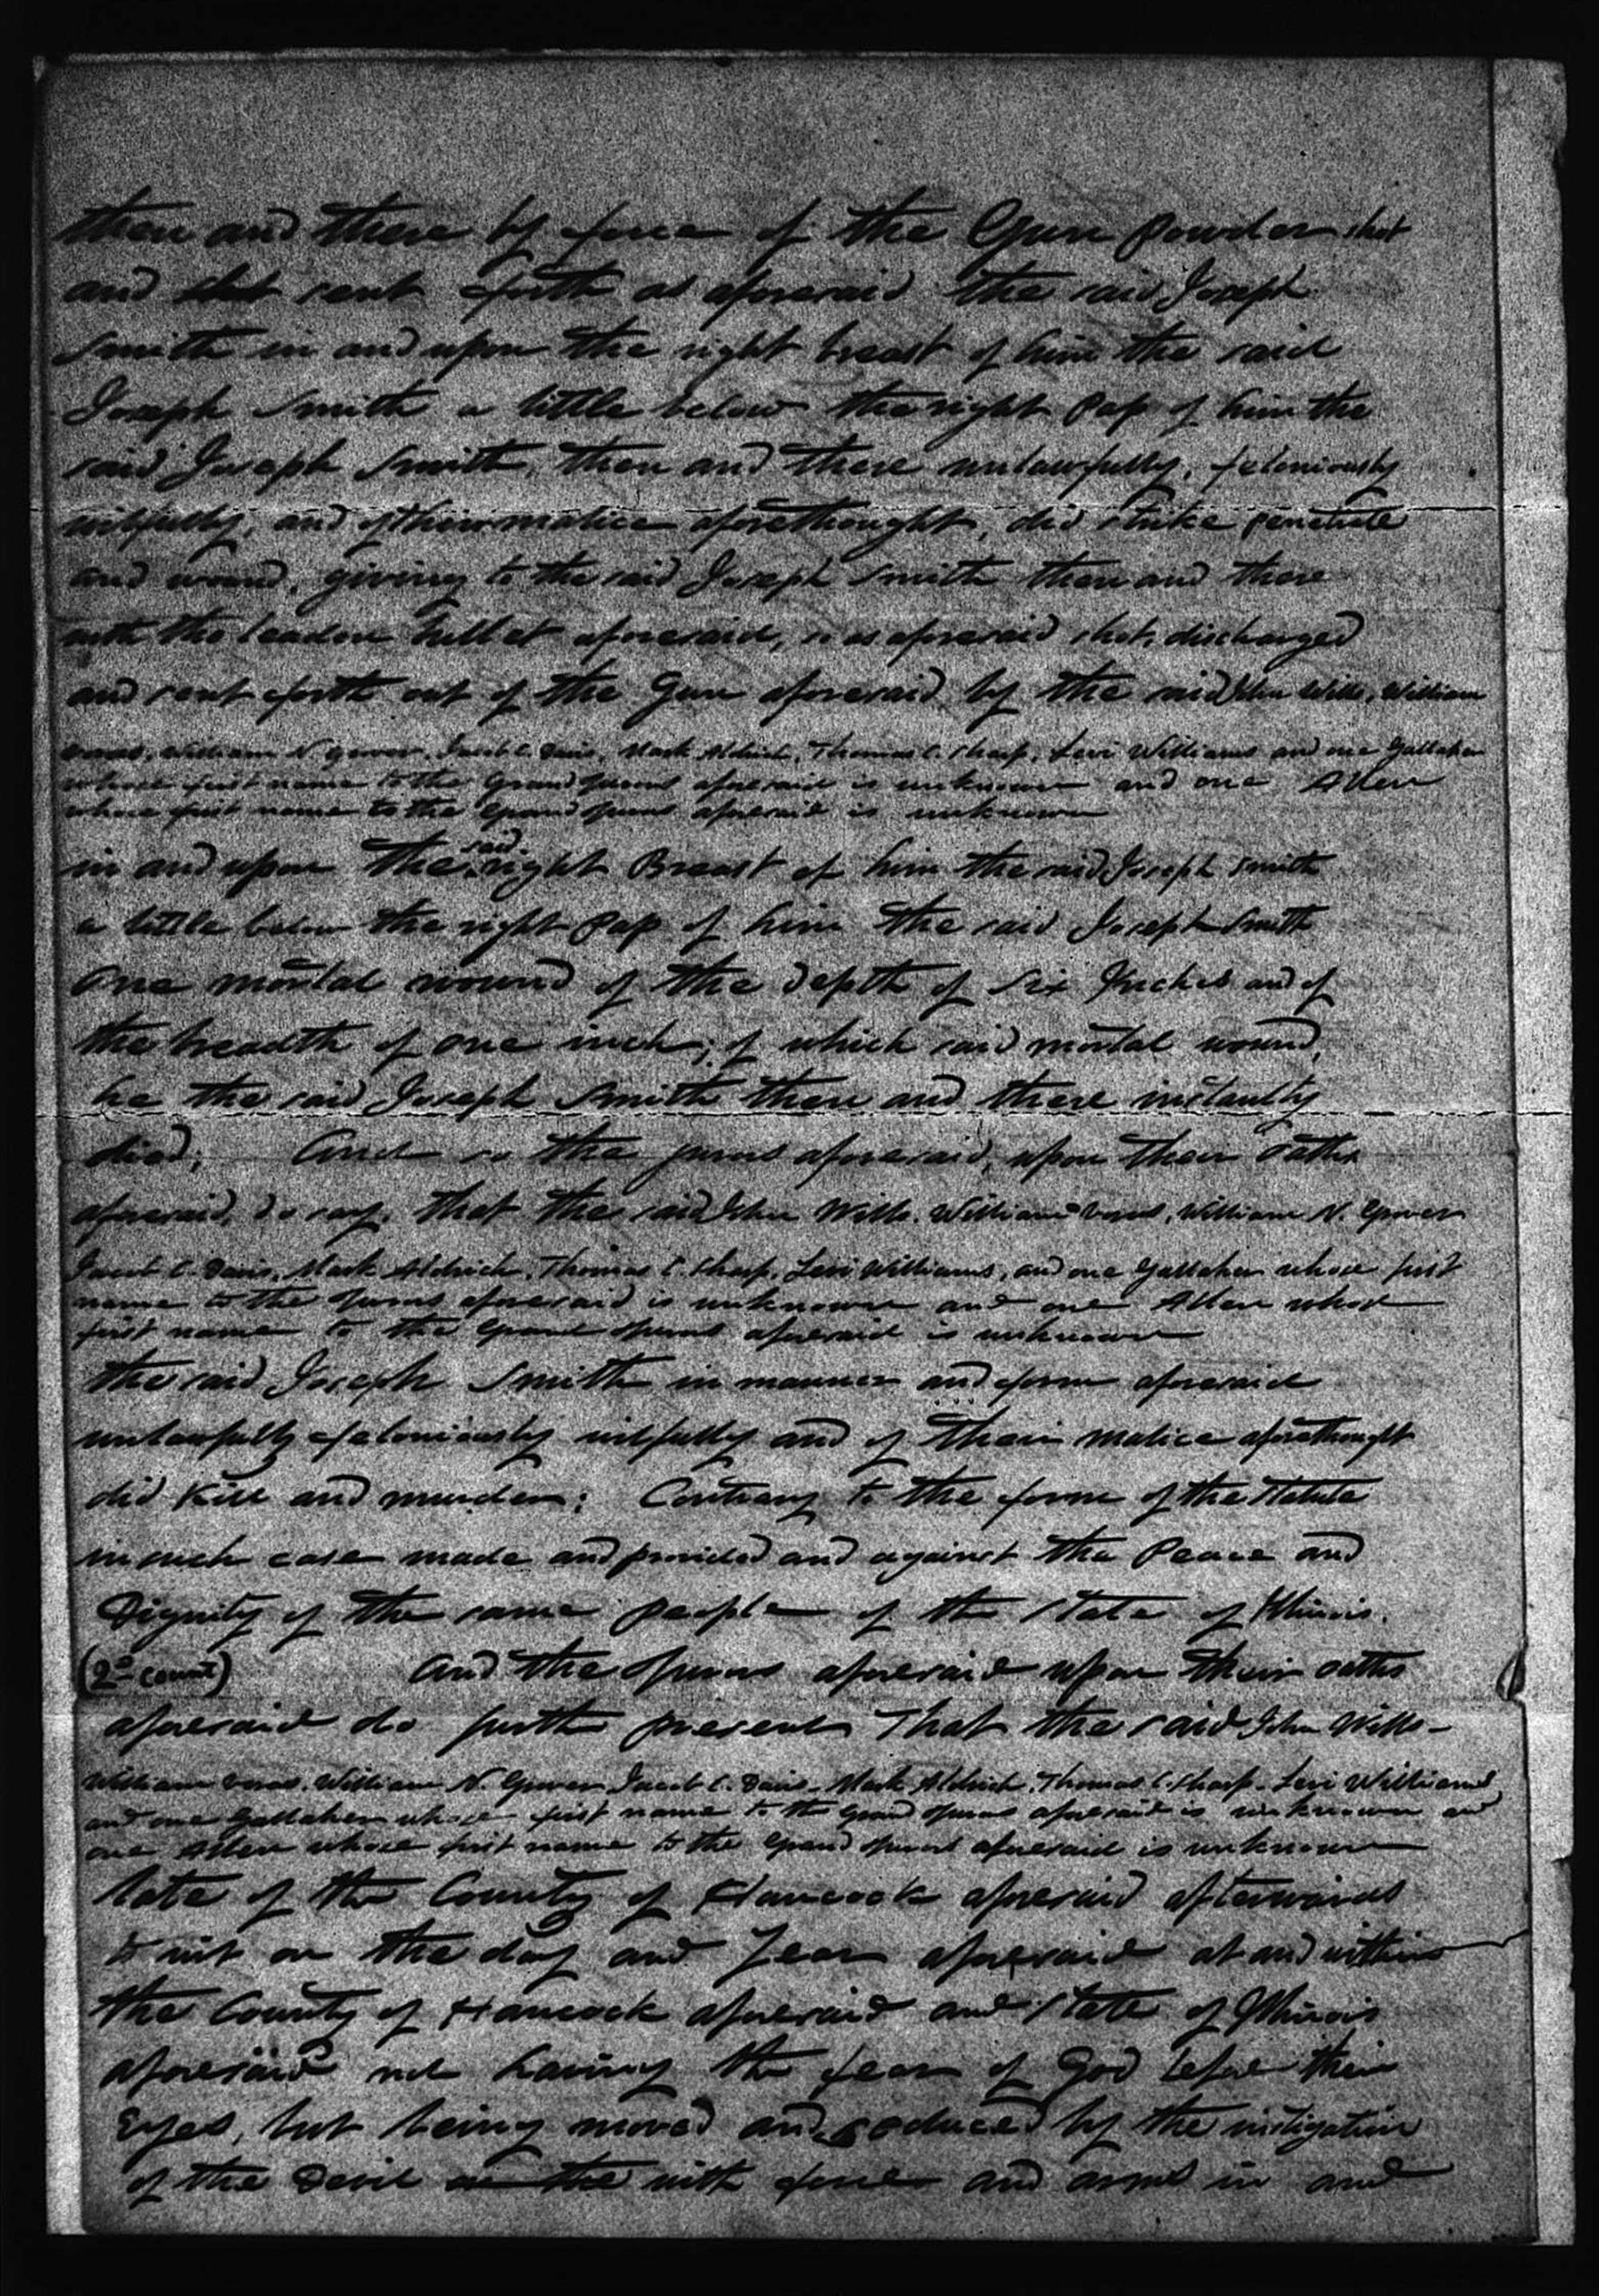 then and there by force of the Gun powder shot
and shot sent forth as aforesaid the said Joseph
Smith in and upon the right breast of him the said
Joseph Smith a little below the right pap of him the
said Joseph Smith, then and there unlawfully, feloniously
wilfully, and of their malice aforethought, did strike penetrate
and wound, giving to the said Joseph Smith then and there
with the leaden bullet aforesaid, so as aforesaid shot, discharged
and sent forth out of the Gun aforesaid by the said John Wills, William
Voras, William N. Grover, Jacob C. Davis, Mark Aldrich, Thomas C. Sharp, Levi Williams and one Gallaher
whose first name to the Grand Jurors aforesaid is unknown and one Allen
whose first name to the Grand Jurors aforesaid is unknown
in and upon the said right Breast of him the said Joseph Smith
a little below the right pap of him the said Joseph Smith
one mortal wound of the depth of six Inches and of
the breadth of one inch; of which said mortal wound,
he the said Joseph Smith then and there instantly
died; And so the jurors aforesaid, upon their oaths
aforesaid, do say, that the said John Wills, William Voras, William N. Grover
Jacob C. Davis, Mark Aldrich, Thomas C. Sharp, Levi Williams, and one Gallaher whose first
name to the Jurors aforesaid is unknown and one Allen whose
first name to the Grand Jurors aforesaid is unknown
the said Joseph Smith in manner and form aforesaid
unlawfully feloniously wilfully and of their malice aforethought
did Kill and murder: Contrary to the form of the Statute
in such case made and provided and against the Peace and
Dignity of the same people of the State of Illinois.
(2d count) And the Jurors aforesaid upon their oaths
aforesaid do further present That the said John Wills-
William Voras, William N. Grover Jacob C. Davis- Mark Aldrich, Thomas C. Sharp- Levi Williams
and one Gallaher whose first name to the Grand Jurors aforesaid is unknown and
one Allen whose first name to the Grand Jurors aforesaid is unknown
late of the County of Hancock aforesaid afterwards
to wit on the day and Year aforesaid at and within
the County of Hancock aforesaid and State of Illinois
aforesaid not having the fear of God before their
Eyes, but being moved and seduced by the instigation
of the Devil on the with force and arms in and